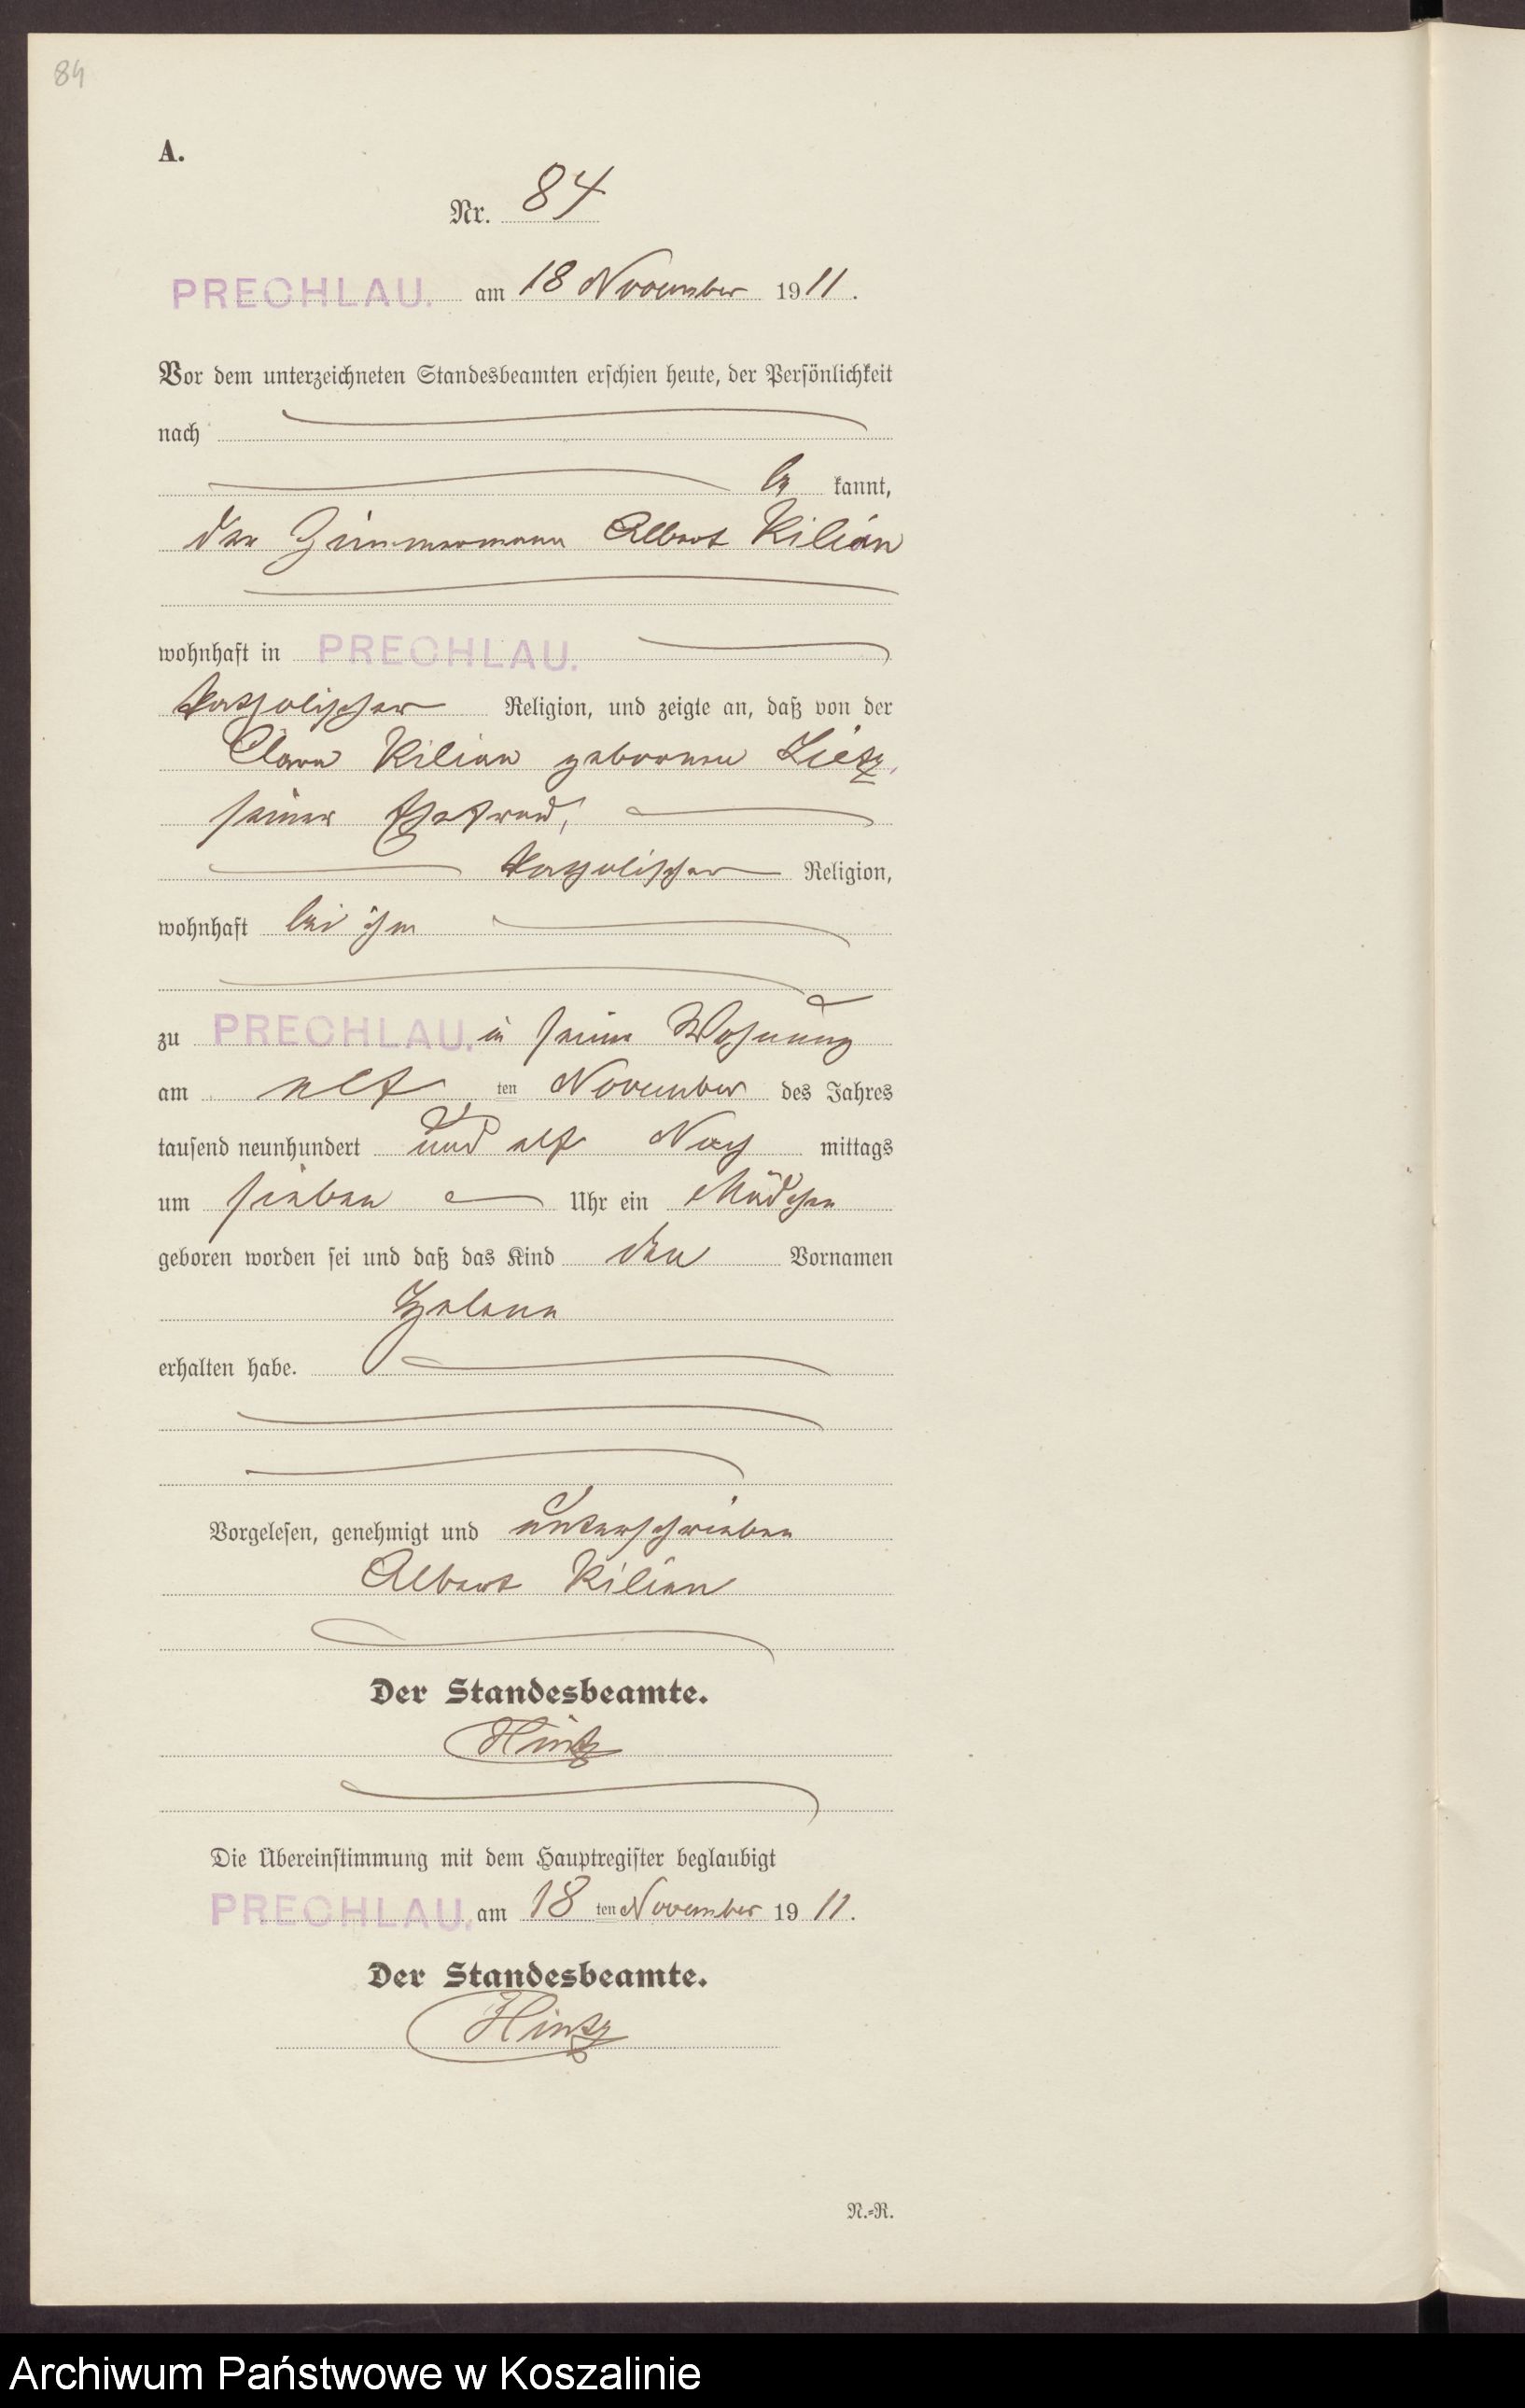 84
A.
Nr. 84
PRECHLAU. am 18 November 1911.
Vor dem unterzeichneten Standesbeamten erschien heute, der Persönlichkeit
nach
be kannt,
der Zimmermann Albert Kilian
wohnhaft in PRECHLAU.
katholischer Religion, und zeigte an, daß von der
Clara Kilian geborenen Lietz,
seiner Ehefrau,
katholischer Religion,
wohnhaft bei ihm
zu PRECHLAU. in seiner Wohnung
am elf ten November des Jahres
tausend neunhundert und elf Nach mittags
um sieben Uhr ein Mädchen
geboren worden sei und daß das Kind den Vornamen
Helene
erhalten habe.
Vorgelesen, genehmigt und unterschrieben
Albert Kilian
Der Standesbeamte.
Hintz
Die Übereinstimmung mit dem Hauptregister beglaubigt
PRECHLAU. am 18 ten November 1911.
Der Standesbeamte.
Hintz
N.-R.
Archiwum Państwowe w Koszalinie